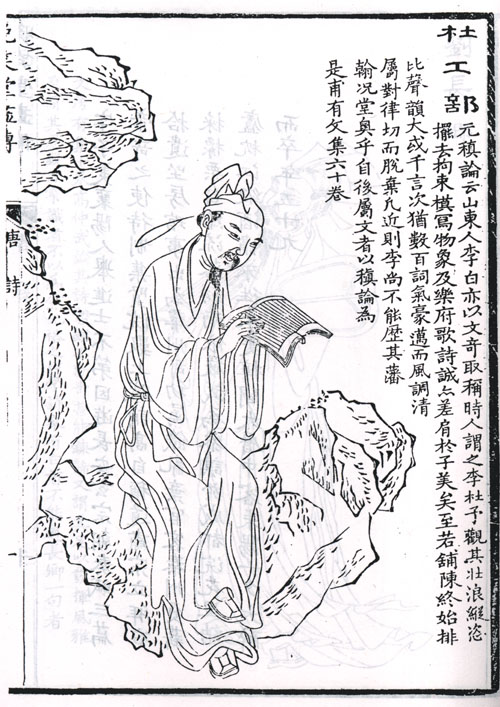 杜工部
元稹論云山東人李白亦以文竒取稱時人謂之李杜予觀其壯浪縱恣
擺去拘束摸寫物象及樂府歌詩誠亦差肩於子美矣至若舖陳終始排
比聲韻大或千言次猶數百詞氣豪邁而風調清
屬對律切而脫棄凡近則李尚不能歷其藩
翰况堂奥乎自後屬文者以稹論為
是甫有文集六十卷